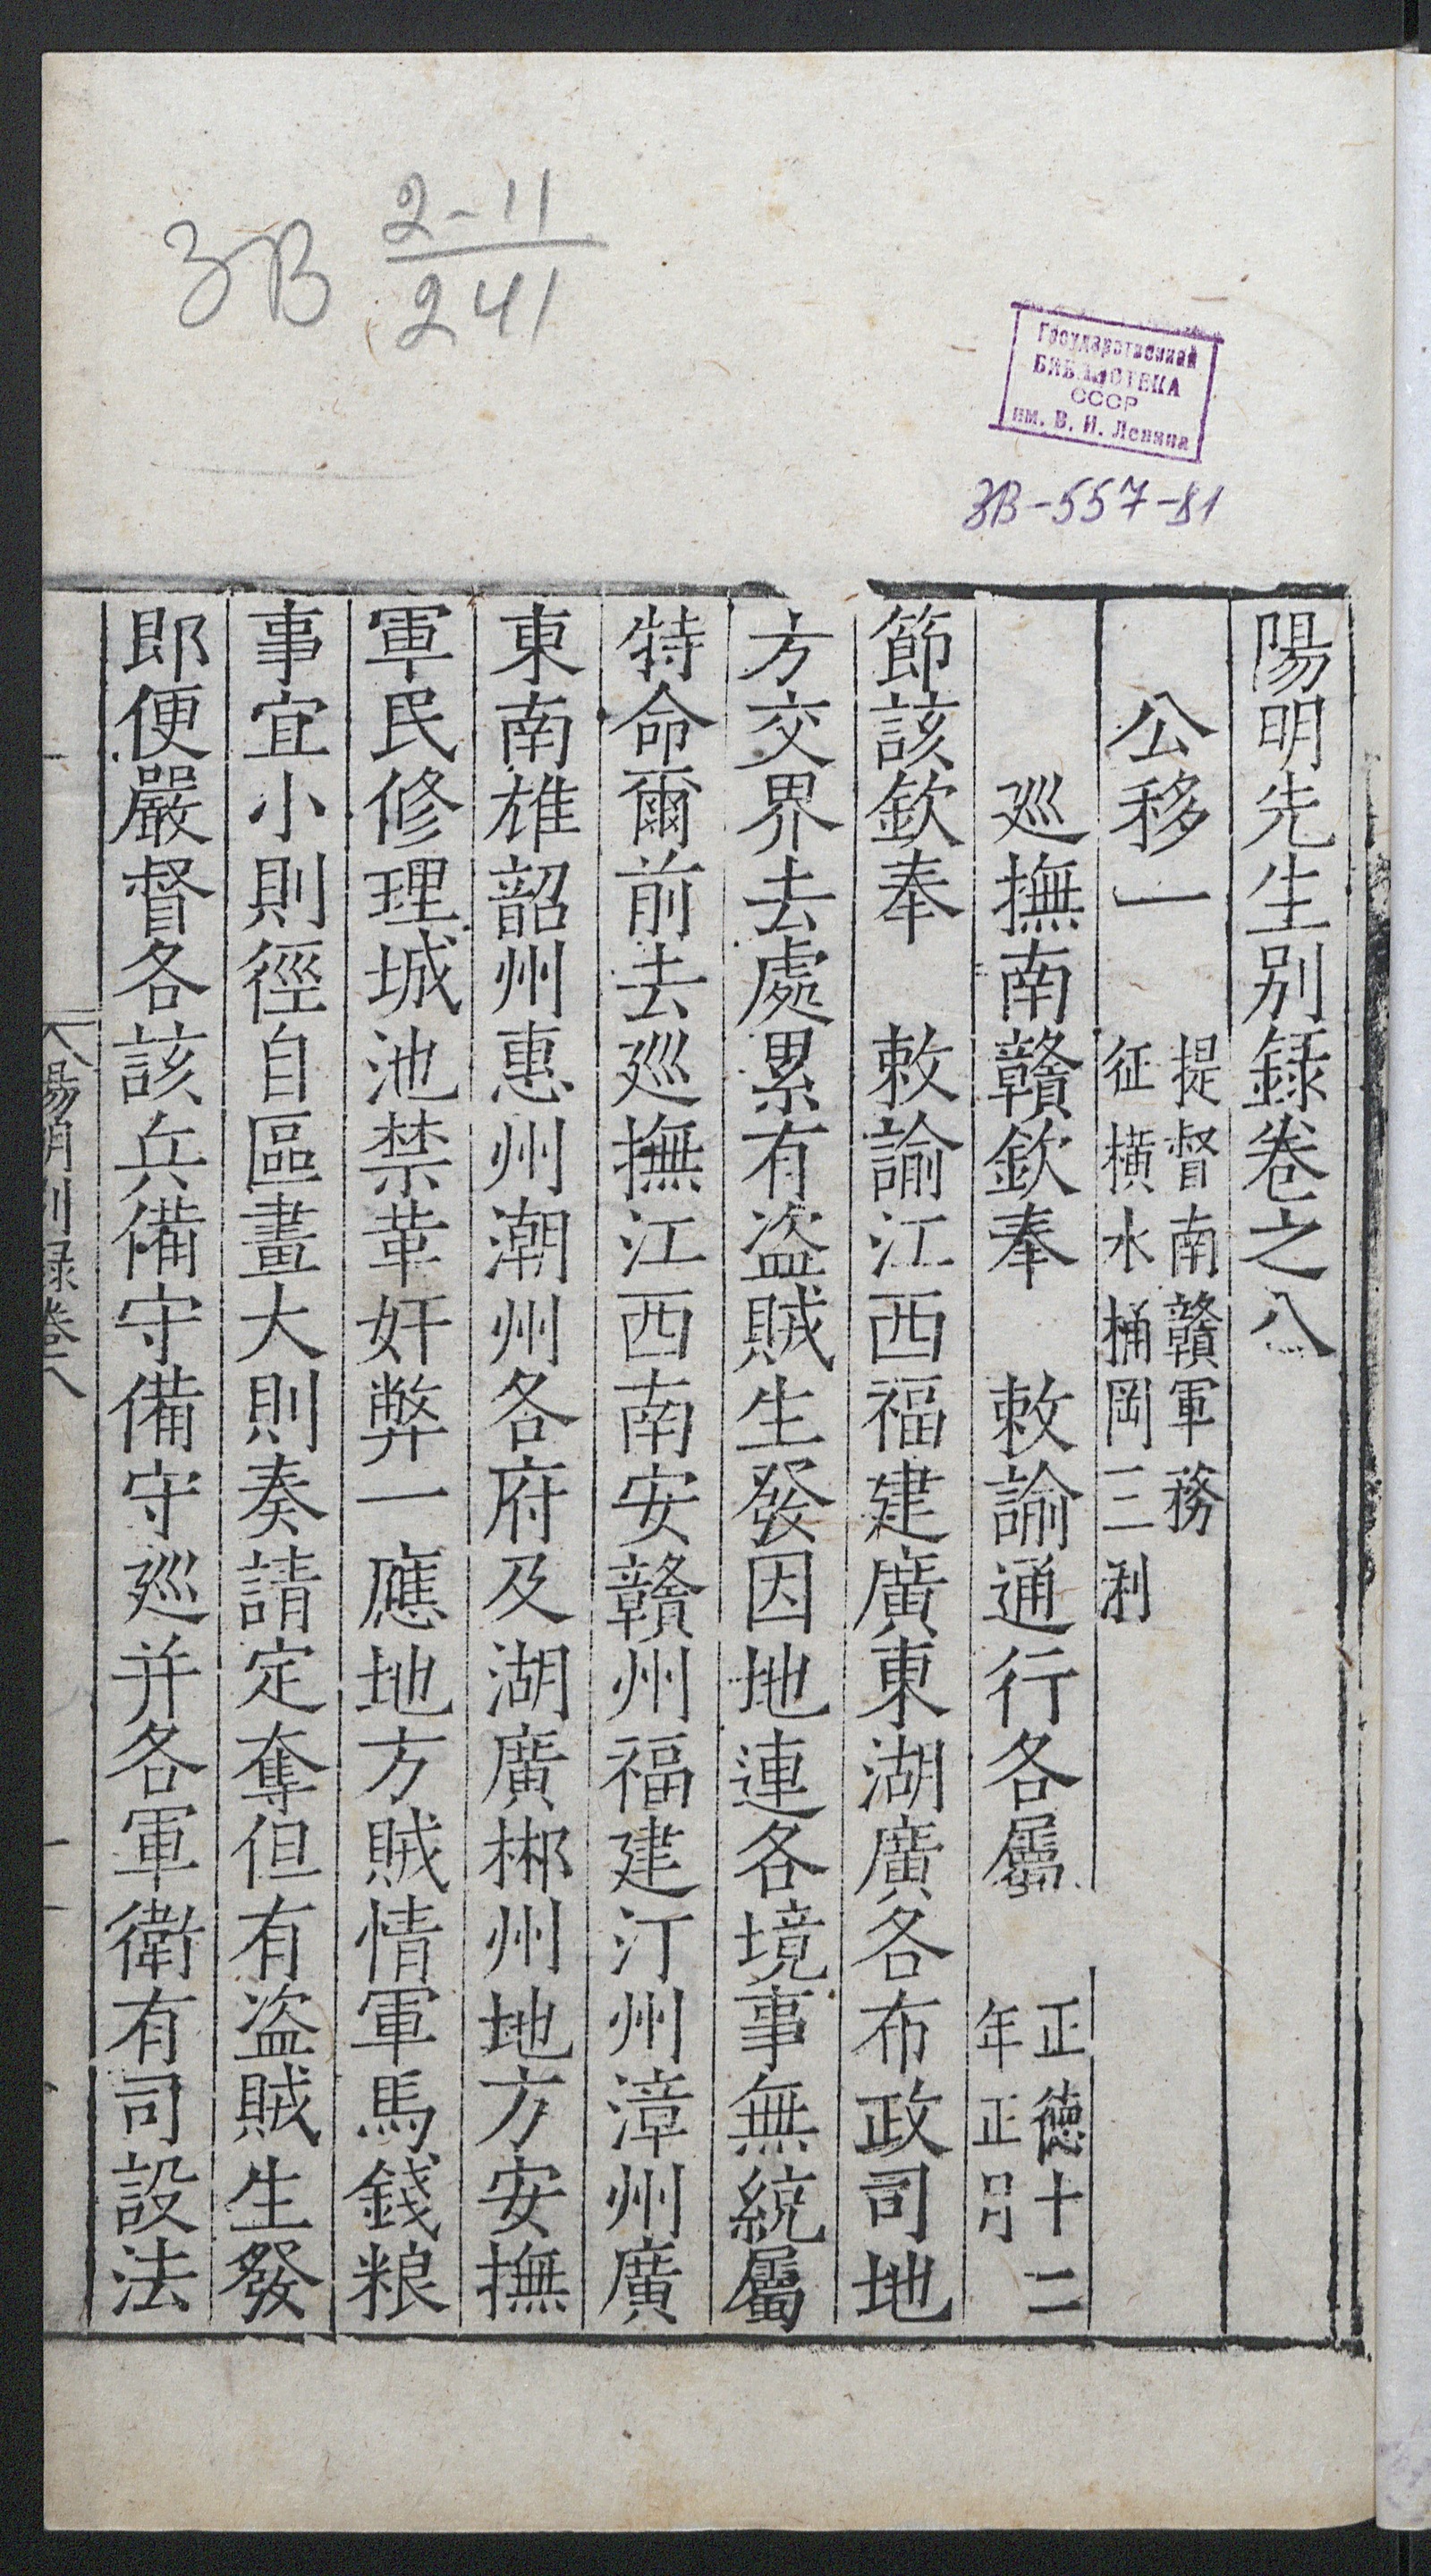 ЗВ 2-11
241
Государственная
БИБЛИОТЕКА
СССР
им. В. И. Ленина
ЗВ-557-81
陽明先生别録卷之八
公移一 提督南贛軍務
征橫水桶岡三浰
廵撫南贛欽奉 敕諭通行各屬 正德十二
年正月
節該欽奉 敕諭江西福建廣東湖廣各布政司地
方交界去處累有盗賊生發因地連各境事無統屬
特命爾前去廵撫江西南安贛州福建汀州漳州廣
東南雄韶州惠州潮州各府及湖廣郴州地方安撫
軍民修理城池禁革奸弊一應地方賊情軍馬錢粮
事宜小則徑自區畫大則奏請定奪但有盗賊生發
即便嚴督各該兵備守備守廵并各軍衛有司設法
陽明别録卷八